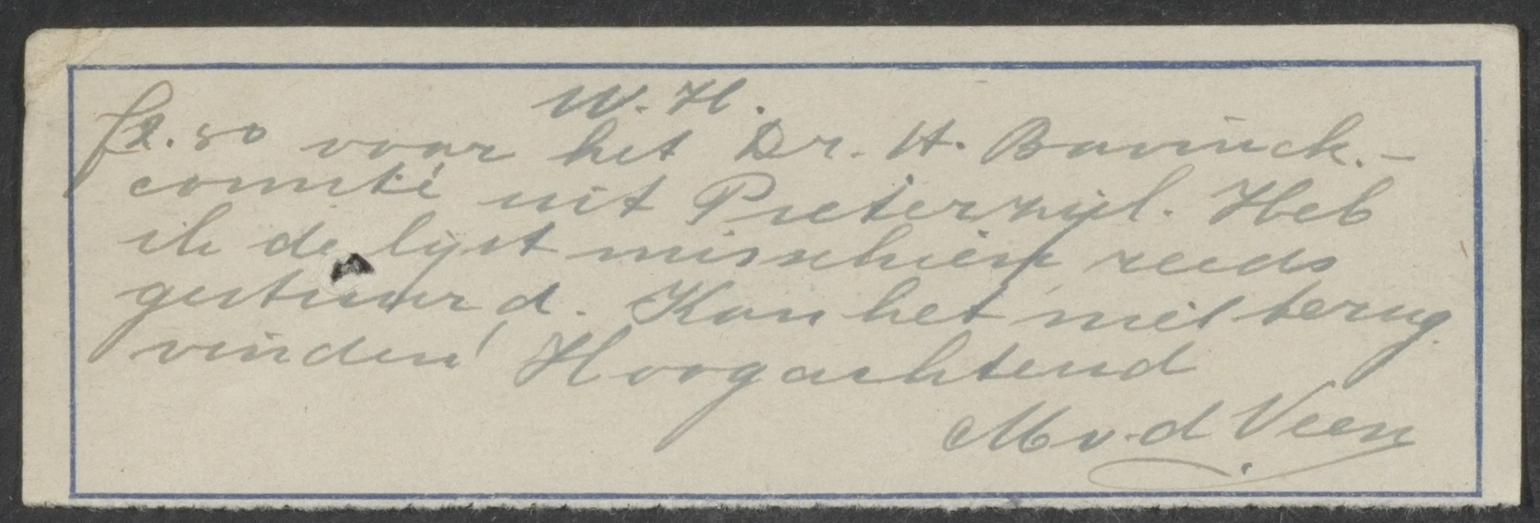 W. H.
f2.50 voor het Dr. H. Bavinck.-
comité uit Pieterzijl. Heb
ik de lijst misschien reeds
gestuurd. Kan het niet terug
vinden! Hoogachtend
M v. d Veen